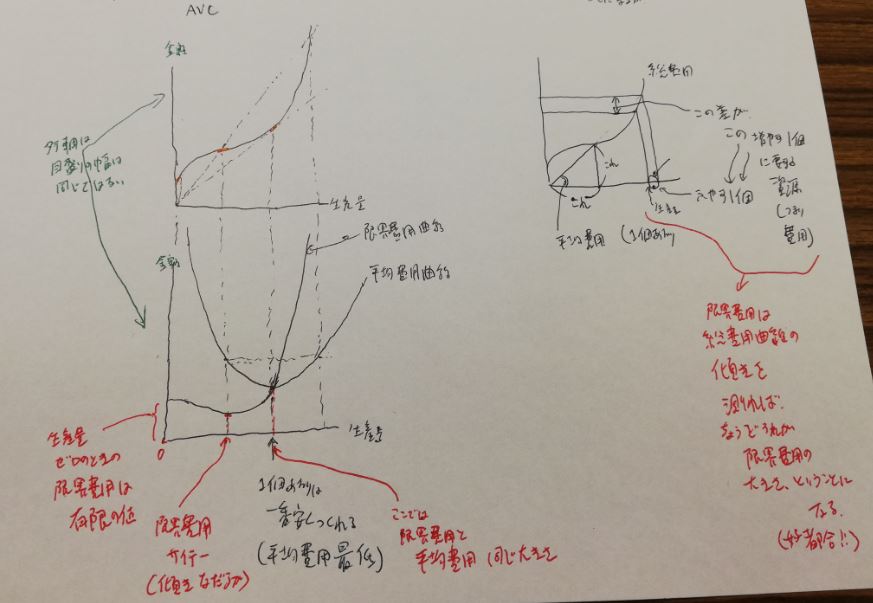 AVC
金額
タテ軸は
目盛りの幅は
同じではない
生産量
限界費用曲線
平均費用曲線
金額
生産量
0
生産量
ゼロのときの
限界費用は
有限の値
限界費用
サイテー
(傾きなだらか)
1個あたりは
一番安くつくれる
(平均費用最低)
ここでは
限界費用と
平均費用 同じ大きさ
総費用
この差が
この増やす1個
に要する
資源
(つまり
費用)
ふやす1個
これ
これ
生産量
平均費用
(1個あたり)
限界費用は
総費用曲線の
傾きを
測れば、
ちょうどそれが
限界費用の
大きさ、ということに
なる。
(好都合!!)